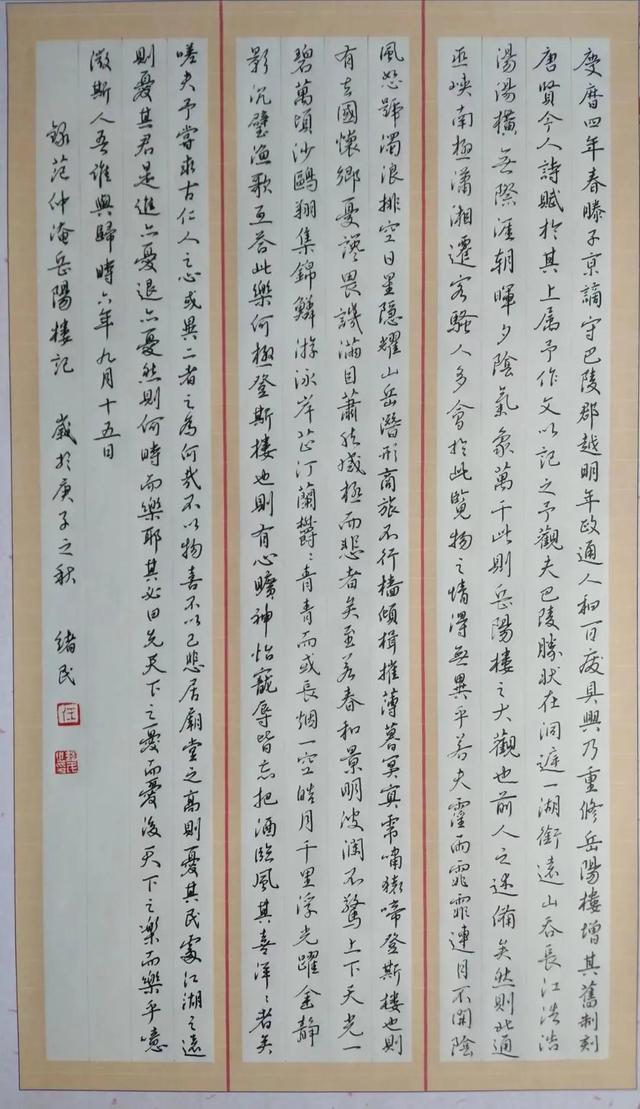 慶曆四年春滕子京謫守巴陵郡越明年政通人和百廢具興乃重修岳陽樓增其舊制刻
唐賢今人詩賦於其上属予作文以記之予觀夫巴陵勝狀在洞庭一湖銜遠山吞長江浩浩
湯湯橫無際涯朝暉夕陰氣象萬千此則岳陽樓之大觀也前人之述備矣然則北通
巫峽南極瀟湘遷客騷人多會於此覽物之情得無異乎若夫霪雨霏霏連月不開陰
風怒號濁浪排空日星隱耀山岳潛形商旅不行檣傾楫摧薄暮冥冥虎嘯猿啼登斯樓也則
有去國懷鄉憂讒畏譏滿目蕭然感極而悲者矣至若春和景明波瀾不驚上下天光一
碧萬頃沙鷗翔集錦鱗游泳岸芷汀蘭欝〻青青而或長烟一空皓月千里浮光躍金靜
影沉璧漁歌互答此樂何極登斯樓也則有心曠神怡寵辱皆忘把酒臨風其喜洋〻者矣
嗟夫予嘗求古仁人之心或異二者之為何哉不以物喜不以己悲居廟堂之高則憂其民處江湖之遠
則憂其君是進亦憂退亦憂然則何時而樂耶其必曰先天下之憂而憂後天下之樂而樂乎噫
微斯人吾誰與歸時六年九月十五日
錄范仲淹岳陽樓記 歲於庚子之秋 緒民
任